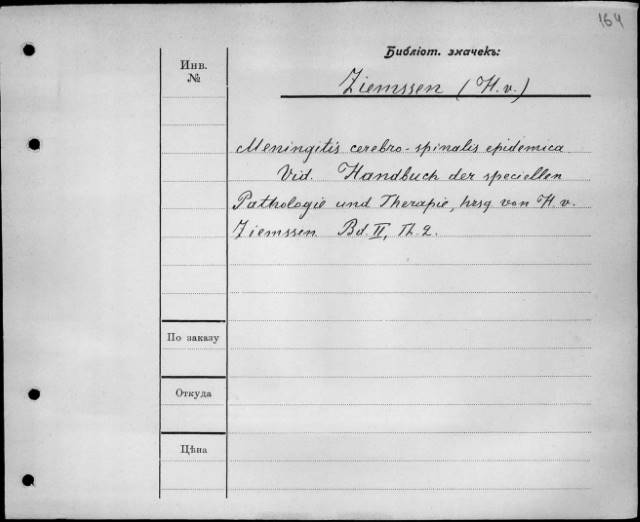 164
Библіот. значекъ:
Инв.
№
Ziemssen (H. v.)
Meningitis cerebro-spinalis epidemica
Vid. Handbuch der speciellen
Pathologie und Therapie, hrsg von H. v.
Ziemssen. Bd. II, Th. 2.
По заказу
Откуда
Цѣна